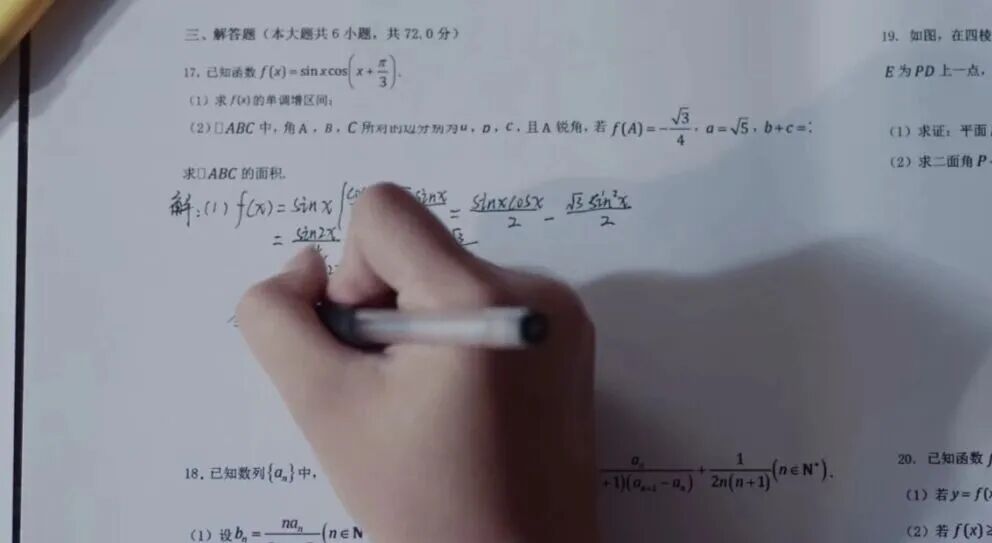 三、解答题（本大题共6小题，共72.0分）
17.已知函数f(x)=sinxcos(x+π/3).
（1）求f(x)的单调增区间；
（2）□ABC中，角A，B，C所对的边分别为a，b，c，且A锐角，若f(A)=-√3/4，a=√5，b+c=
求□ABC的面积.
解：(1) f(x)=sinx( sinx = sinxcosx/2 - √3sin²x/2
= sin2x
18.已知数列{aₙ}中， +1)(aₙ₊₁-aₙ) + 1/2n(n+1) (n∈N*).
（1）设bₙ= naₙ (n∈N
19. 如图，在四棱
E为PD上一点，
（1）求证：平面
（2）求二面角P-
20. 已知函数f
（1）若y=f(x
（2）若f(x)≥